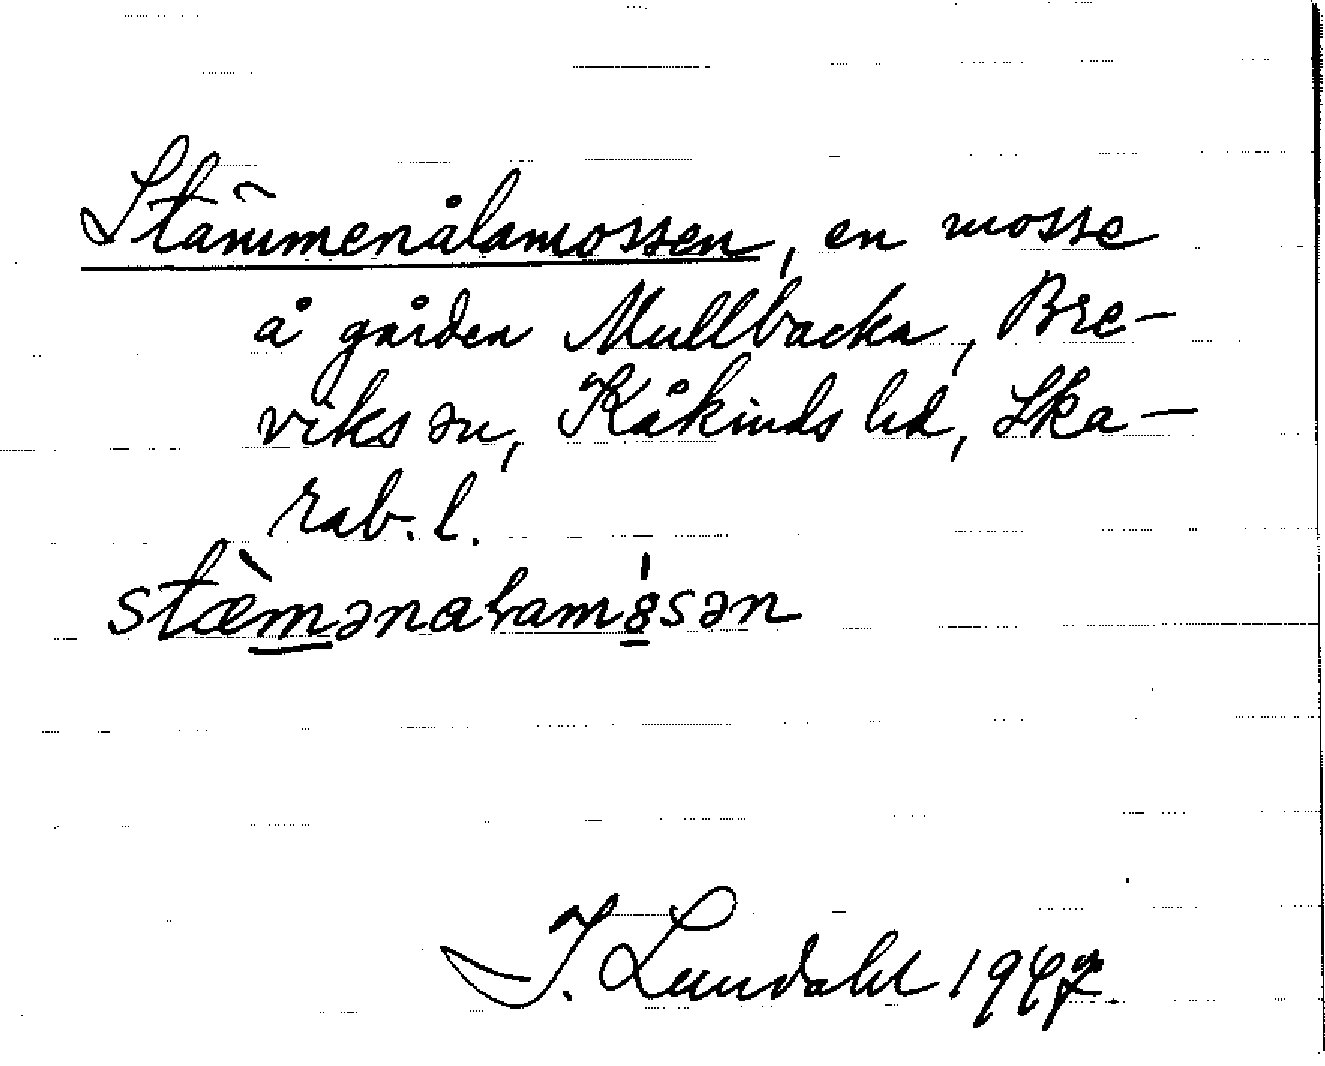 Stämmenålamossen, en mosse
å gården Mullbacka, Bre-
viks sn, Kåkinds hd, Ska-
rab. l.
stæ̀mənaɫamo̍sən
I. Lundahl 1947.